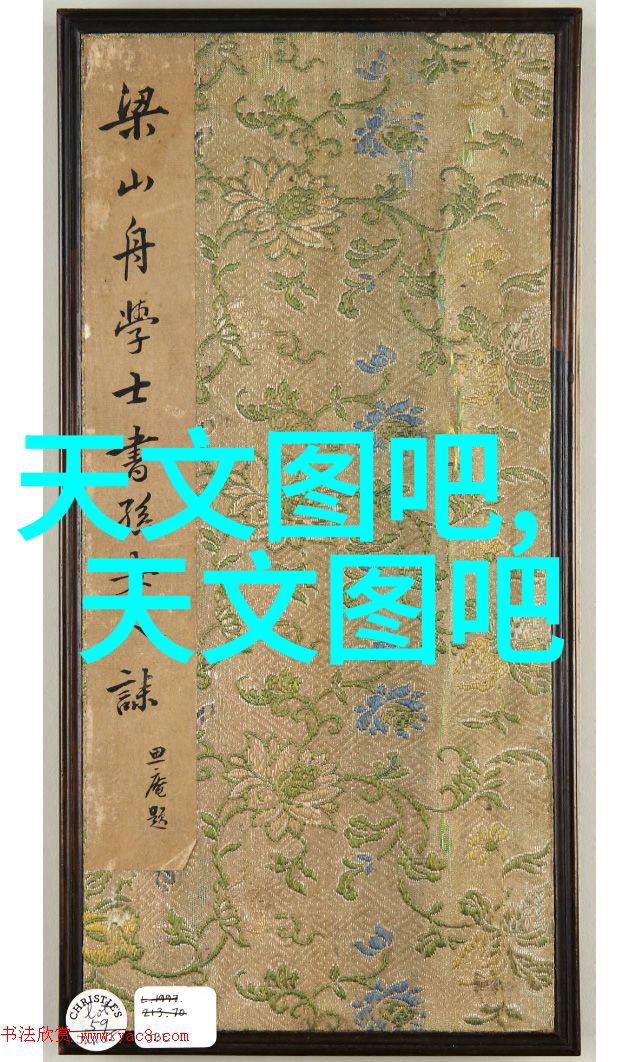 梁山舟学士書孫夫人誄
思庵題
天文图吧,
天文图吧
CHRISTIE'S
lot
59
L.1997.
213.70
书法欣赏 www.yac8.com